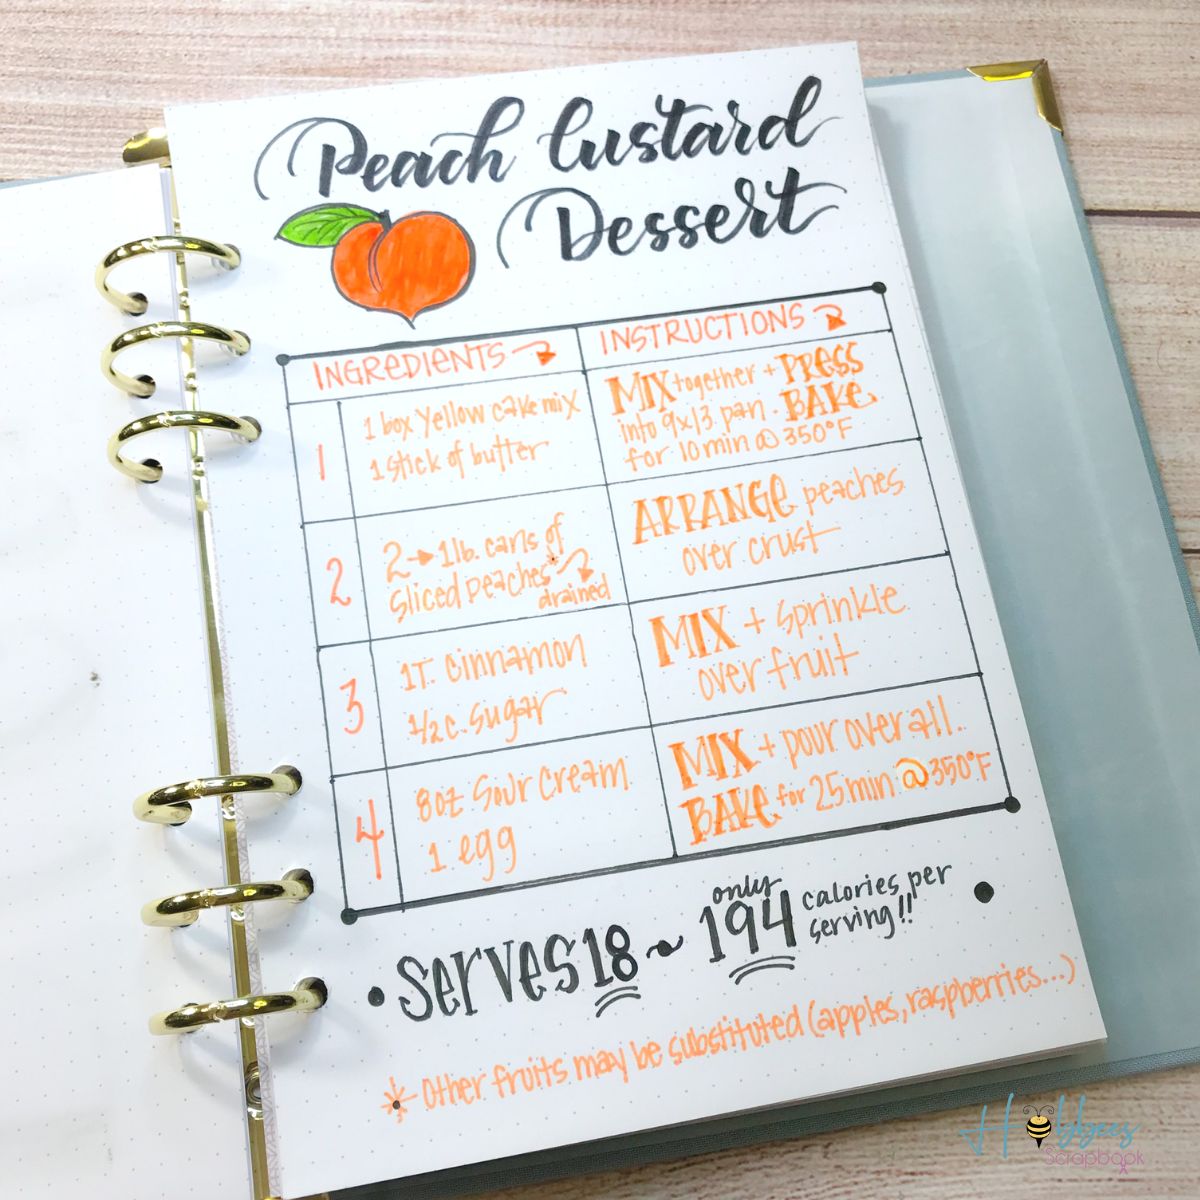 Peach Custard
Dessert
INGREDIENTS
INSTRUCTIONS
1
1 box yellow cake mix
1 stick of butter
MIX together + PRESS
into 9x13 pan. BAKE
for 10 min @ 350°F
2
2 → 1 lb. cans of
sliced peaches*
drained
ARRANGE peaches
over crust
3
1T. cinnamon
1/2 c. sugar
MIX + sprinkle
over fruit
4
8oz sour cream
1 egg
MIX + pour over all.
BAKE for 25 min @ 350°F
• Serves 18 ~ only 194 calories per
serving!! •
* Other fruits may be substituted (apples, raspberries...)
Hobbees
Scrapbook